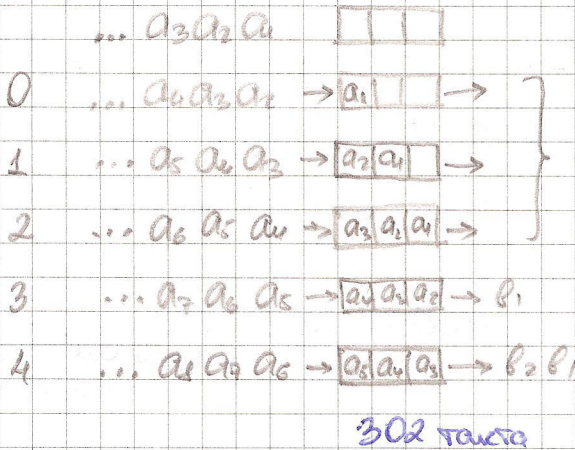 ... a₃ a₂ a₁
0 ... a₄ a₃ a₂ → a₁ →
1 ... a₅ a₄ a₃ → a₂ a₁ →
2 ... a₆ a₅ a₄ → a₃ a₂ a₁ →
3 ... a₇ a₆ a₅ → a₄ a₃ a₂ → b₁
4 ... a₈ a₇ a₆ → a₅ a₄ a₃ → b₂ b₁
302 такта